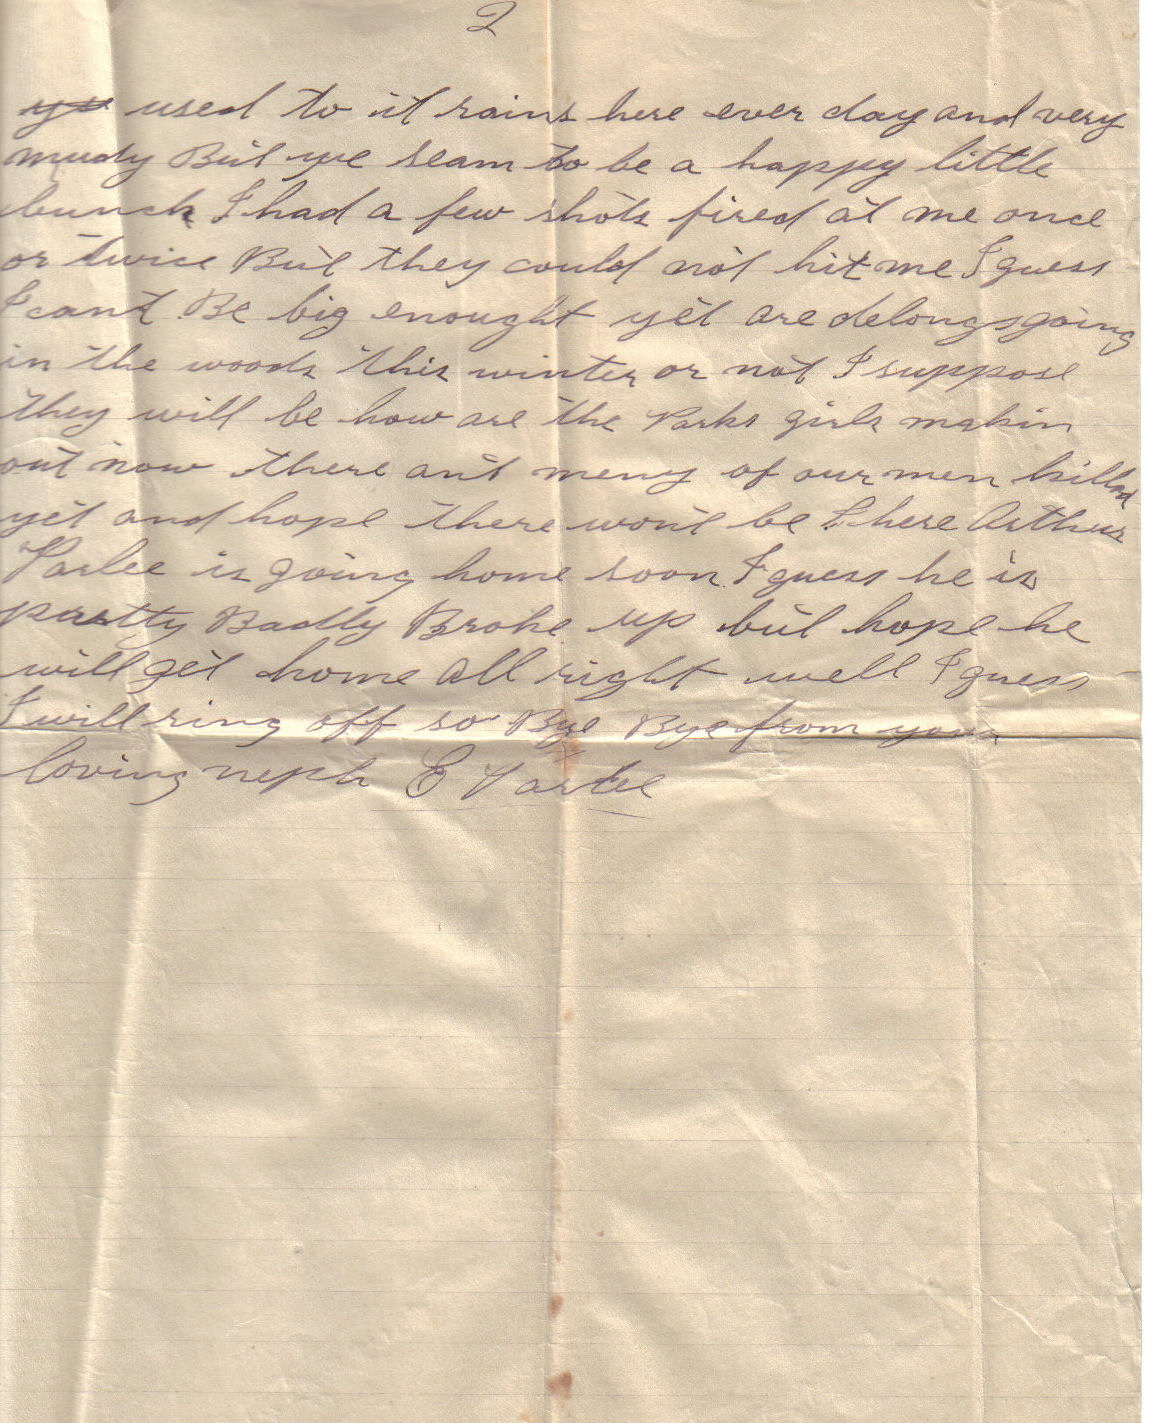 2
used to it rains here ever day and very
mudy But we seam to be a happy little
bunch I had a few shots fired at me once
or twice But they could not hit me I guess
I cant Be big enought yet are delongs going
in the woods this winter or not I suppose
they will be how are the Parks girls makin
out now there ant meny of our men killed
yet and hope there wont be I here Arthur
Parlee is going home soon I guess he is
pretty Badly Broke up but hope he
will get home all right well I guess
I will ring off so Bye Bye from your
loving neph E Parlee